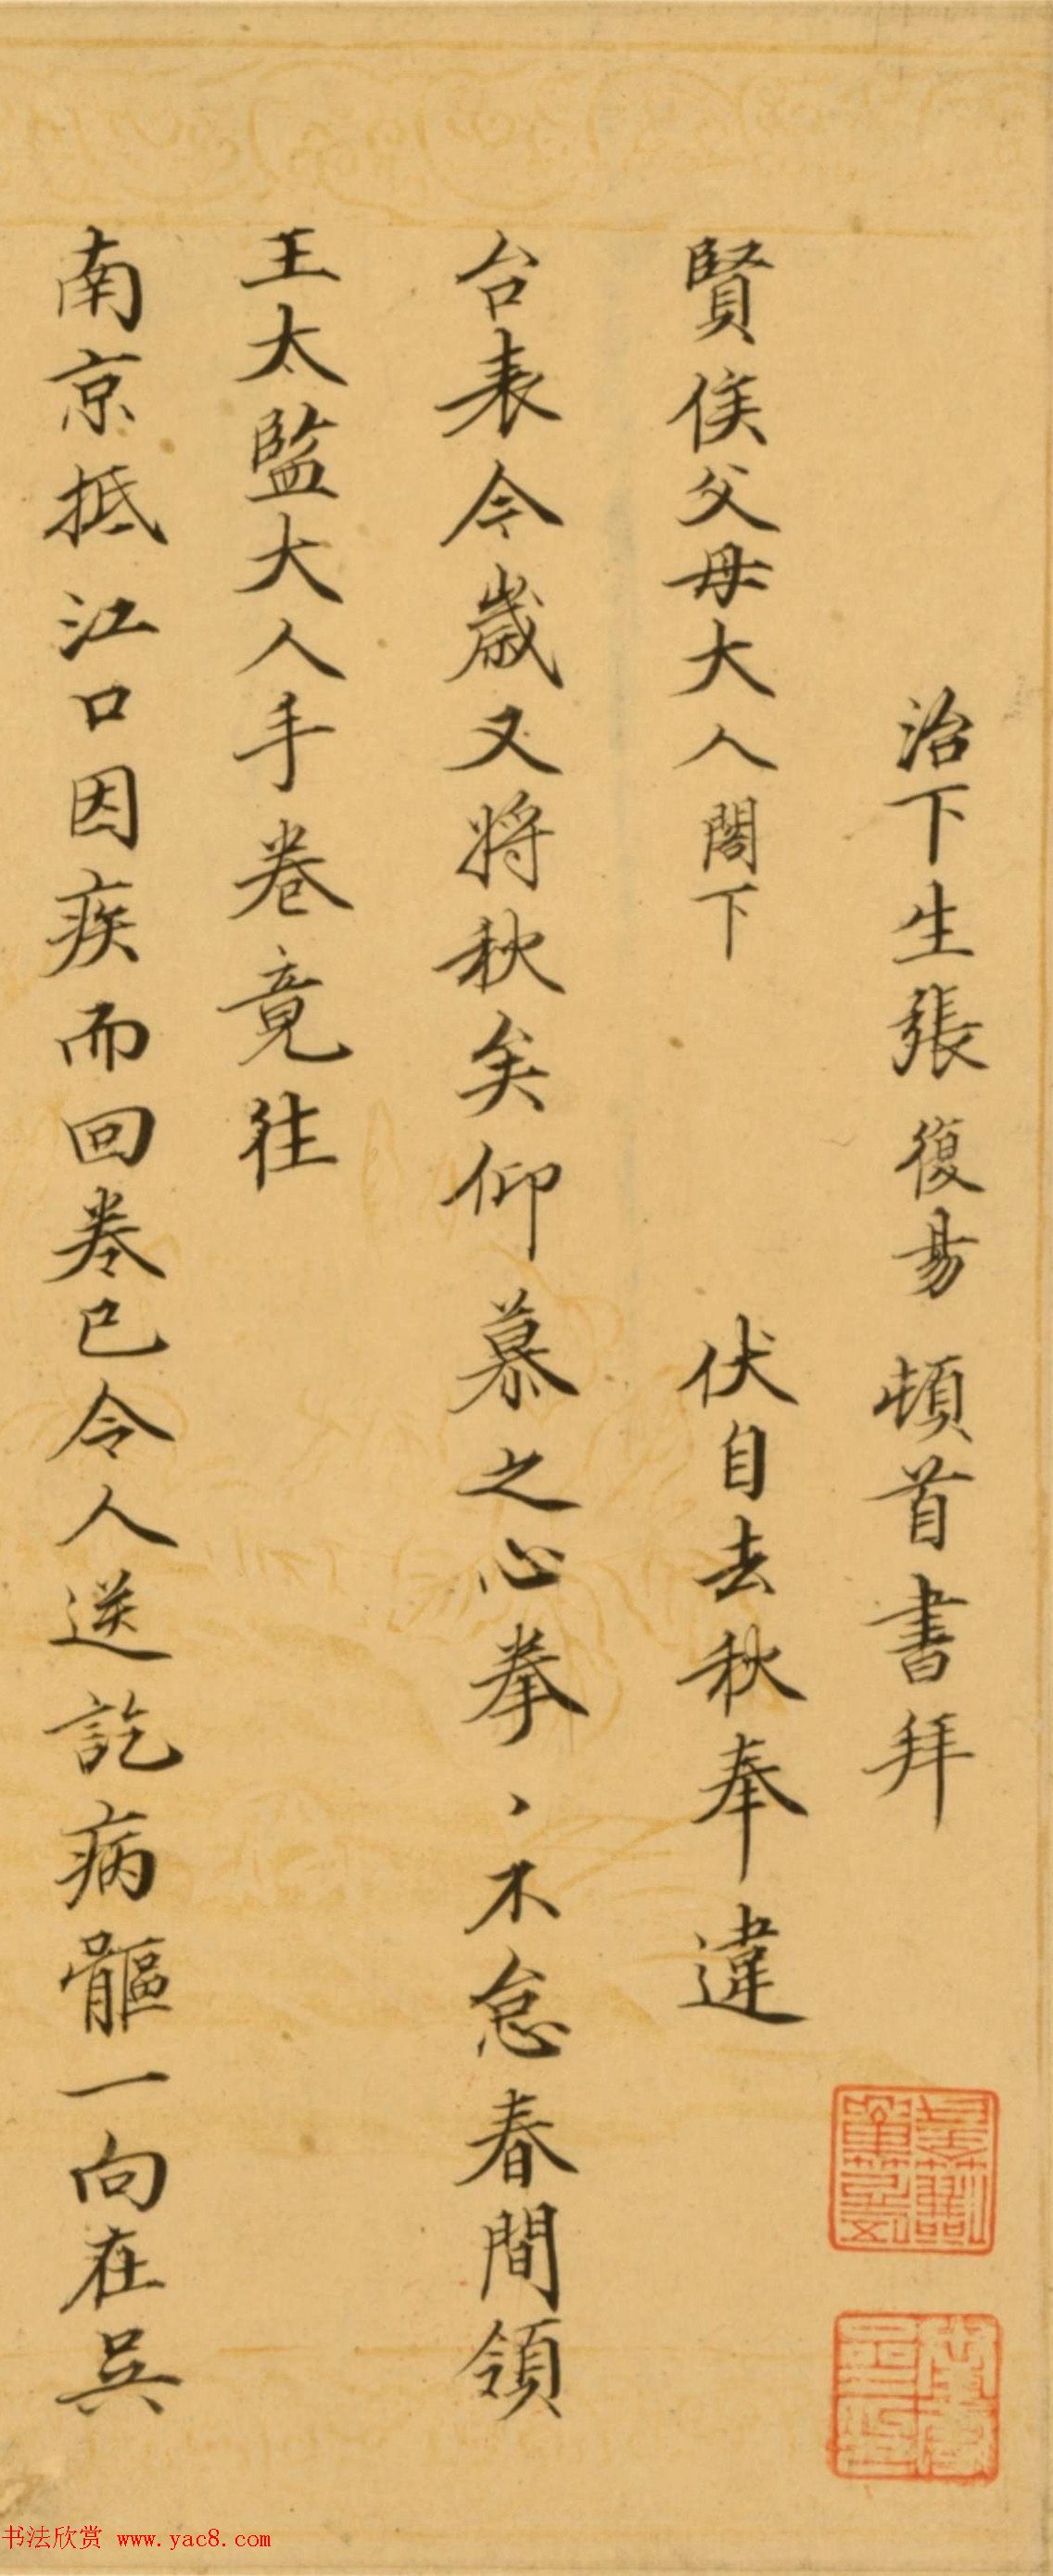 治下生張復昜頓首書拜
賢侯父母大人閣下 伏自去秋奉違
台表今歳又将秋矣仰慕之心拳、不怠春間領
王太監大人手卷竟往
南京抵江口因疾而回卷已令人送訖病軀一向在吳
书法欣赏 www.yac8.com